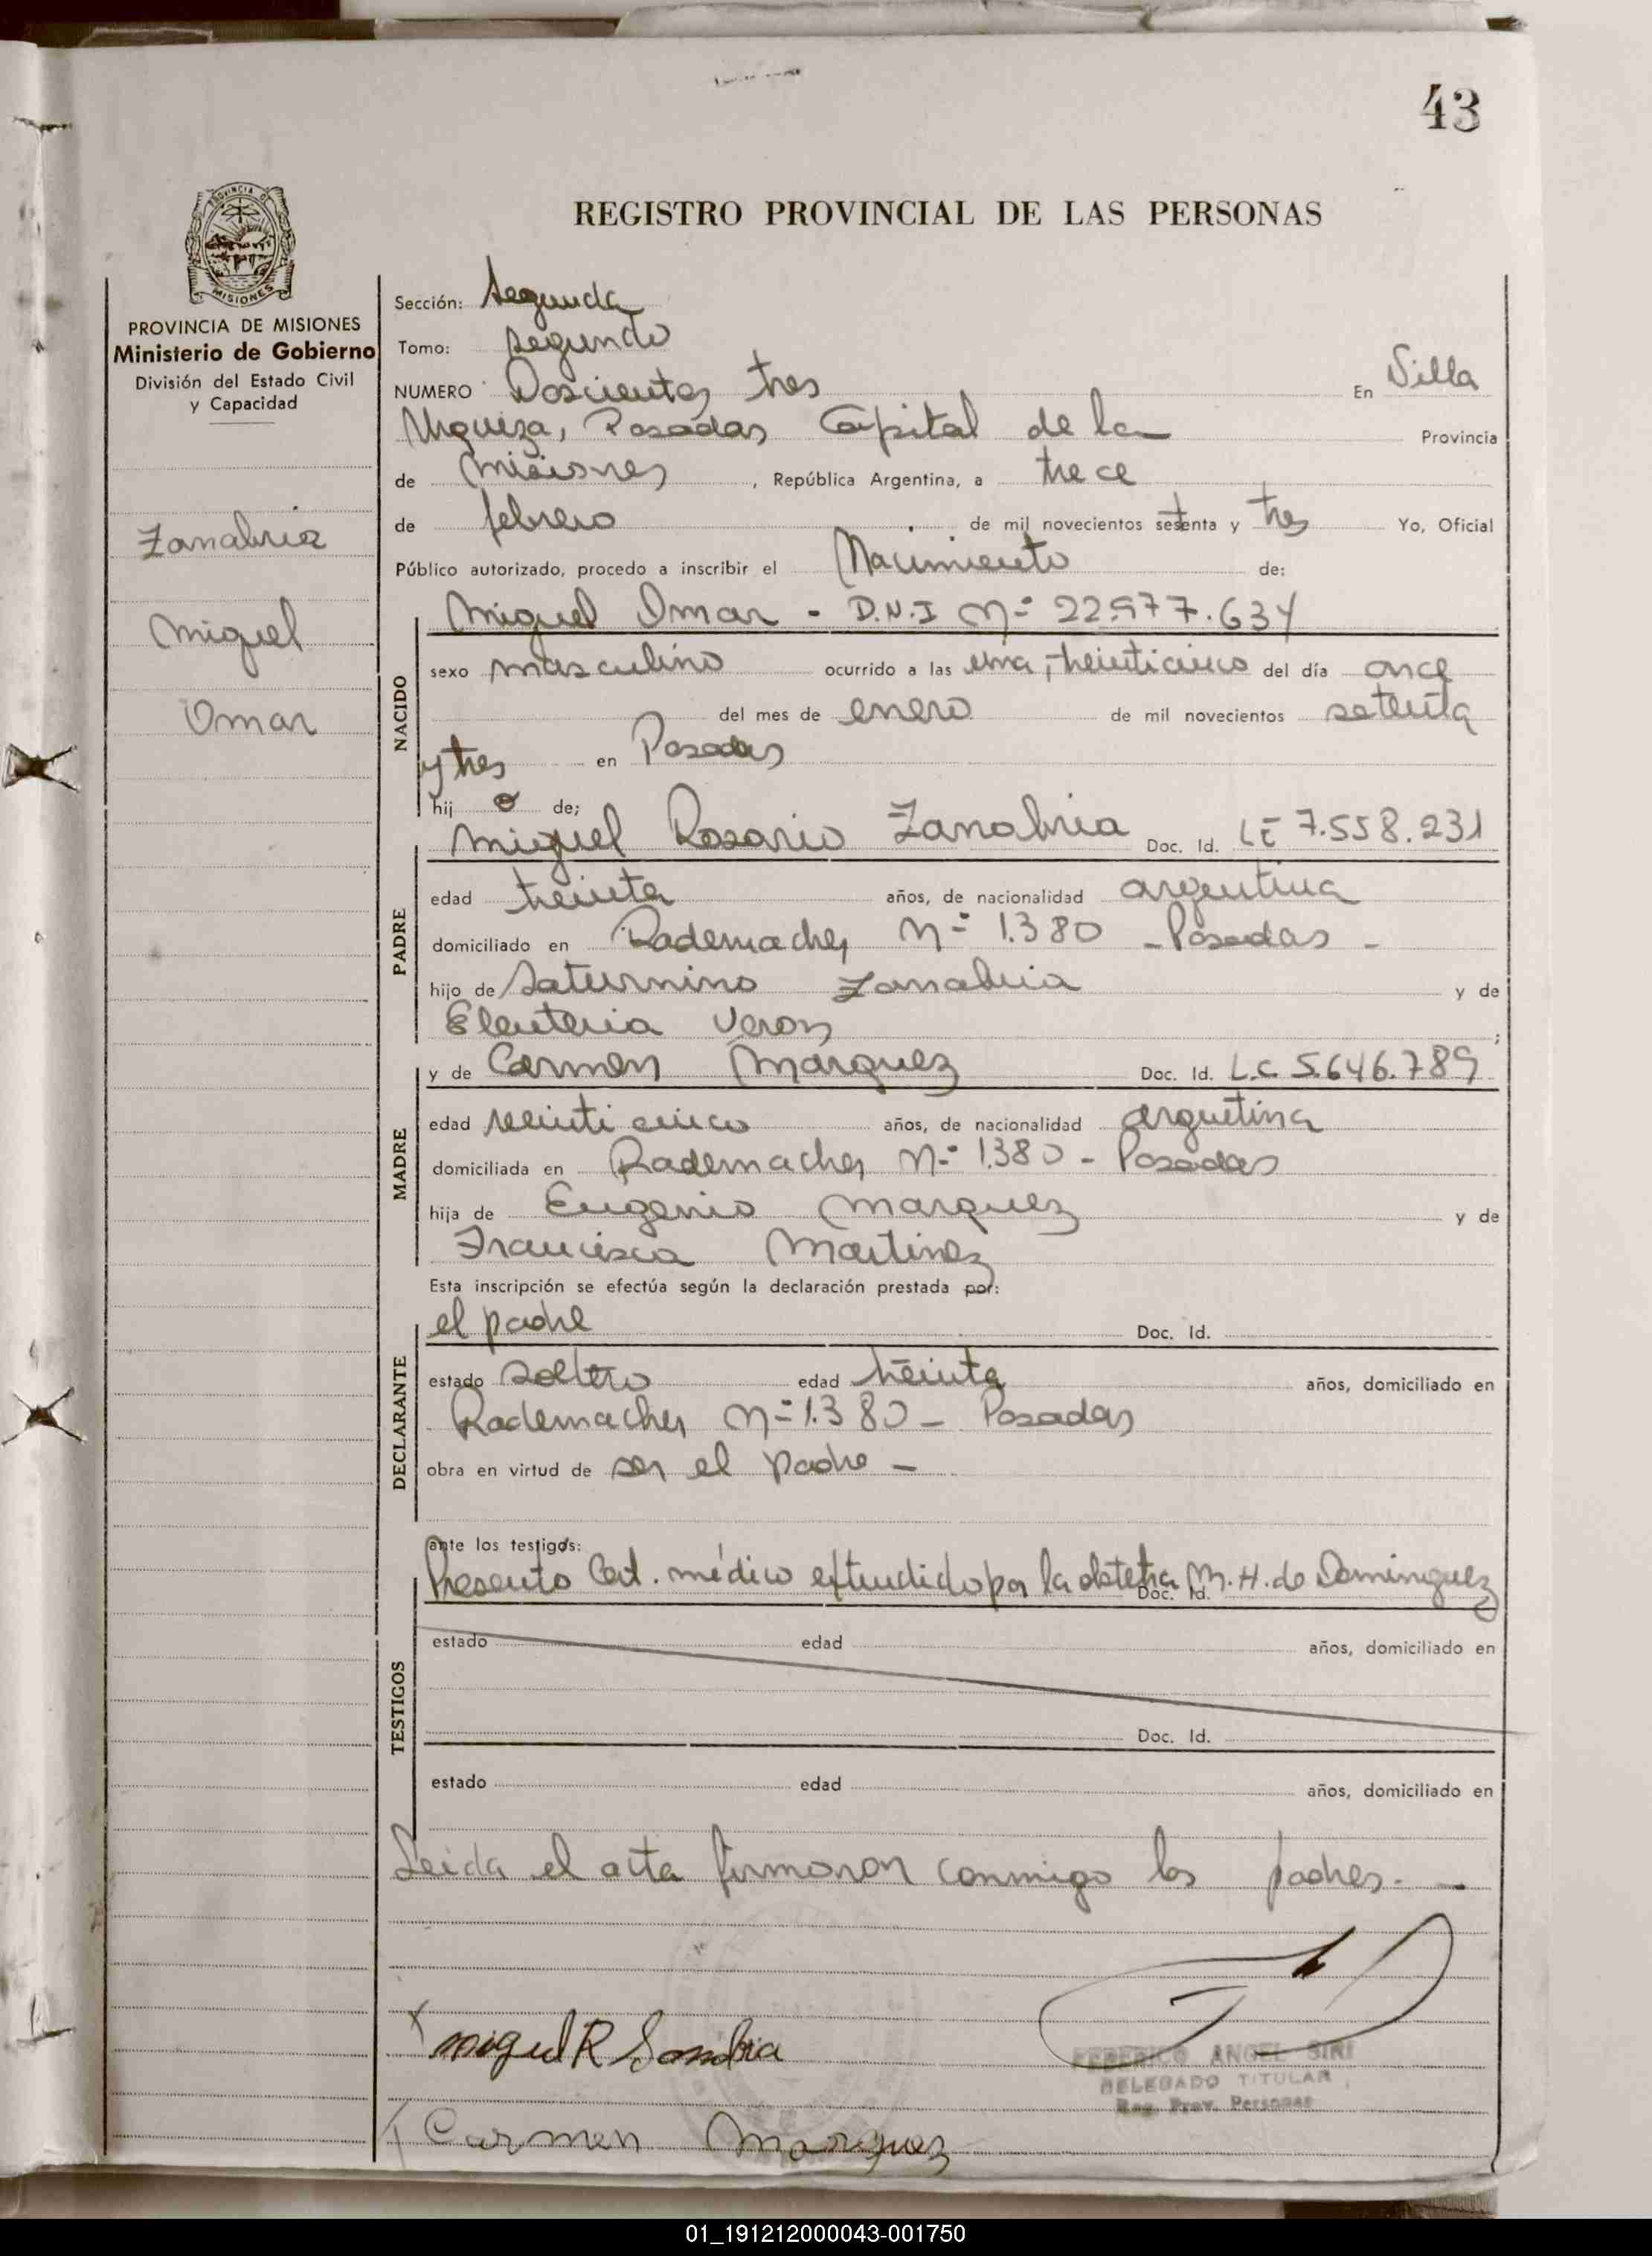 43
REGISTRO PROVINCIAL DE LAS PERSONAS
PROVINCIA DE MISIONES
Ministerio de Gobierno
División del Estado Civil
y Capacidad
Zanabria
Miguel
Omar
Sección: Segunda
Tomo: segundo
NUMERO Doscientos tres En Villa
Urquiza, Posadas Capital de la Provincia
de Misiones, República Argentina, a trece
de febrero de mil novecientos setenta y tres Yo, Oficial
Público autorizado, procedo a inscribir el Nacimiento de:
NACIDO
Miguel Omar - D.N.I Nº 22.977.634
sexo masculino ocurrido a las una, treinticinco del día once
del mes de enero de mil novecientos setenta
y tres en Posadas
hij o de;
PADRE
Miguel Rosario Zanabria Doc. Id. LE 7.558.231
edad treinta años, de nacionalidad argentina
domiciliado en Rademacher Nº 1.380 - Posadas -
hijo de Saturnino Zanabria y de
Eleuteria Veron ;
MADRE
y de Carmen Marquez Doc. Id. L.C 5.646.789
edad veinticinco años, de nacionalidad argentina
domiciliada en Rademacher Nº 1.380 - Posadas
hija de Eugenio Marquez y de
Francisca Martinez
Esta inscripción se efectúa según la declaración prestada por:
DECLARANTE
el padre Doc. Id.
estado soltero edad treinta años, domiciliado en
Rademacher Nº 1.380 - Posadas
obra en virtud de ser el padre -
ante los testigos:
TESTIGOS
Presento Cert. médico extendido por la obstetra M. H. de Dominguez
Doc. Id.
estado edad años, domiciliado en
Doc. Id.
estado edad años, domiciliado en
Leida el acta firmaron conmigo los padres. -
Miguel R
Carmen Marquez
FEDERICO ANGEL SIRI
DELEGADO TITULAR
Reg. Prov. Personas
01_191212000043-001750